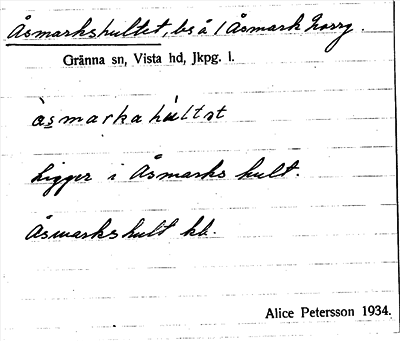 Åsmarkshultet, bs å 1 Åsmark Norrg.
Gränna sn, Vista hd, Jkpg. l.
åsmarkahultət
Ligger i Åsmarks hult.
Åsmarkshult kb.
Alice Petersson 1934.